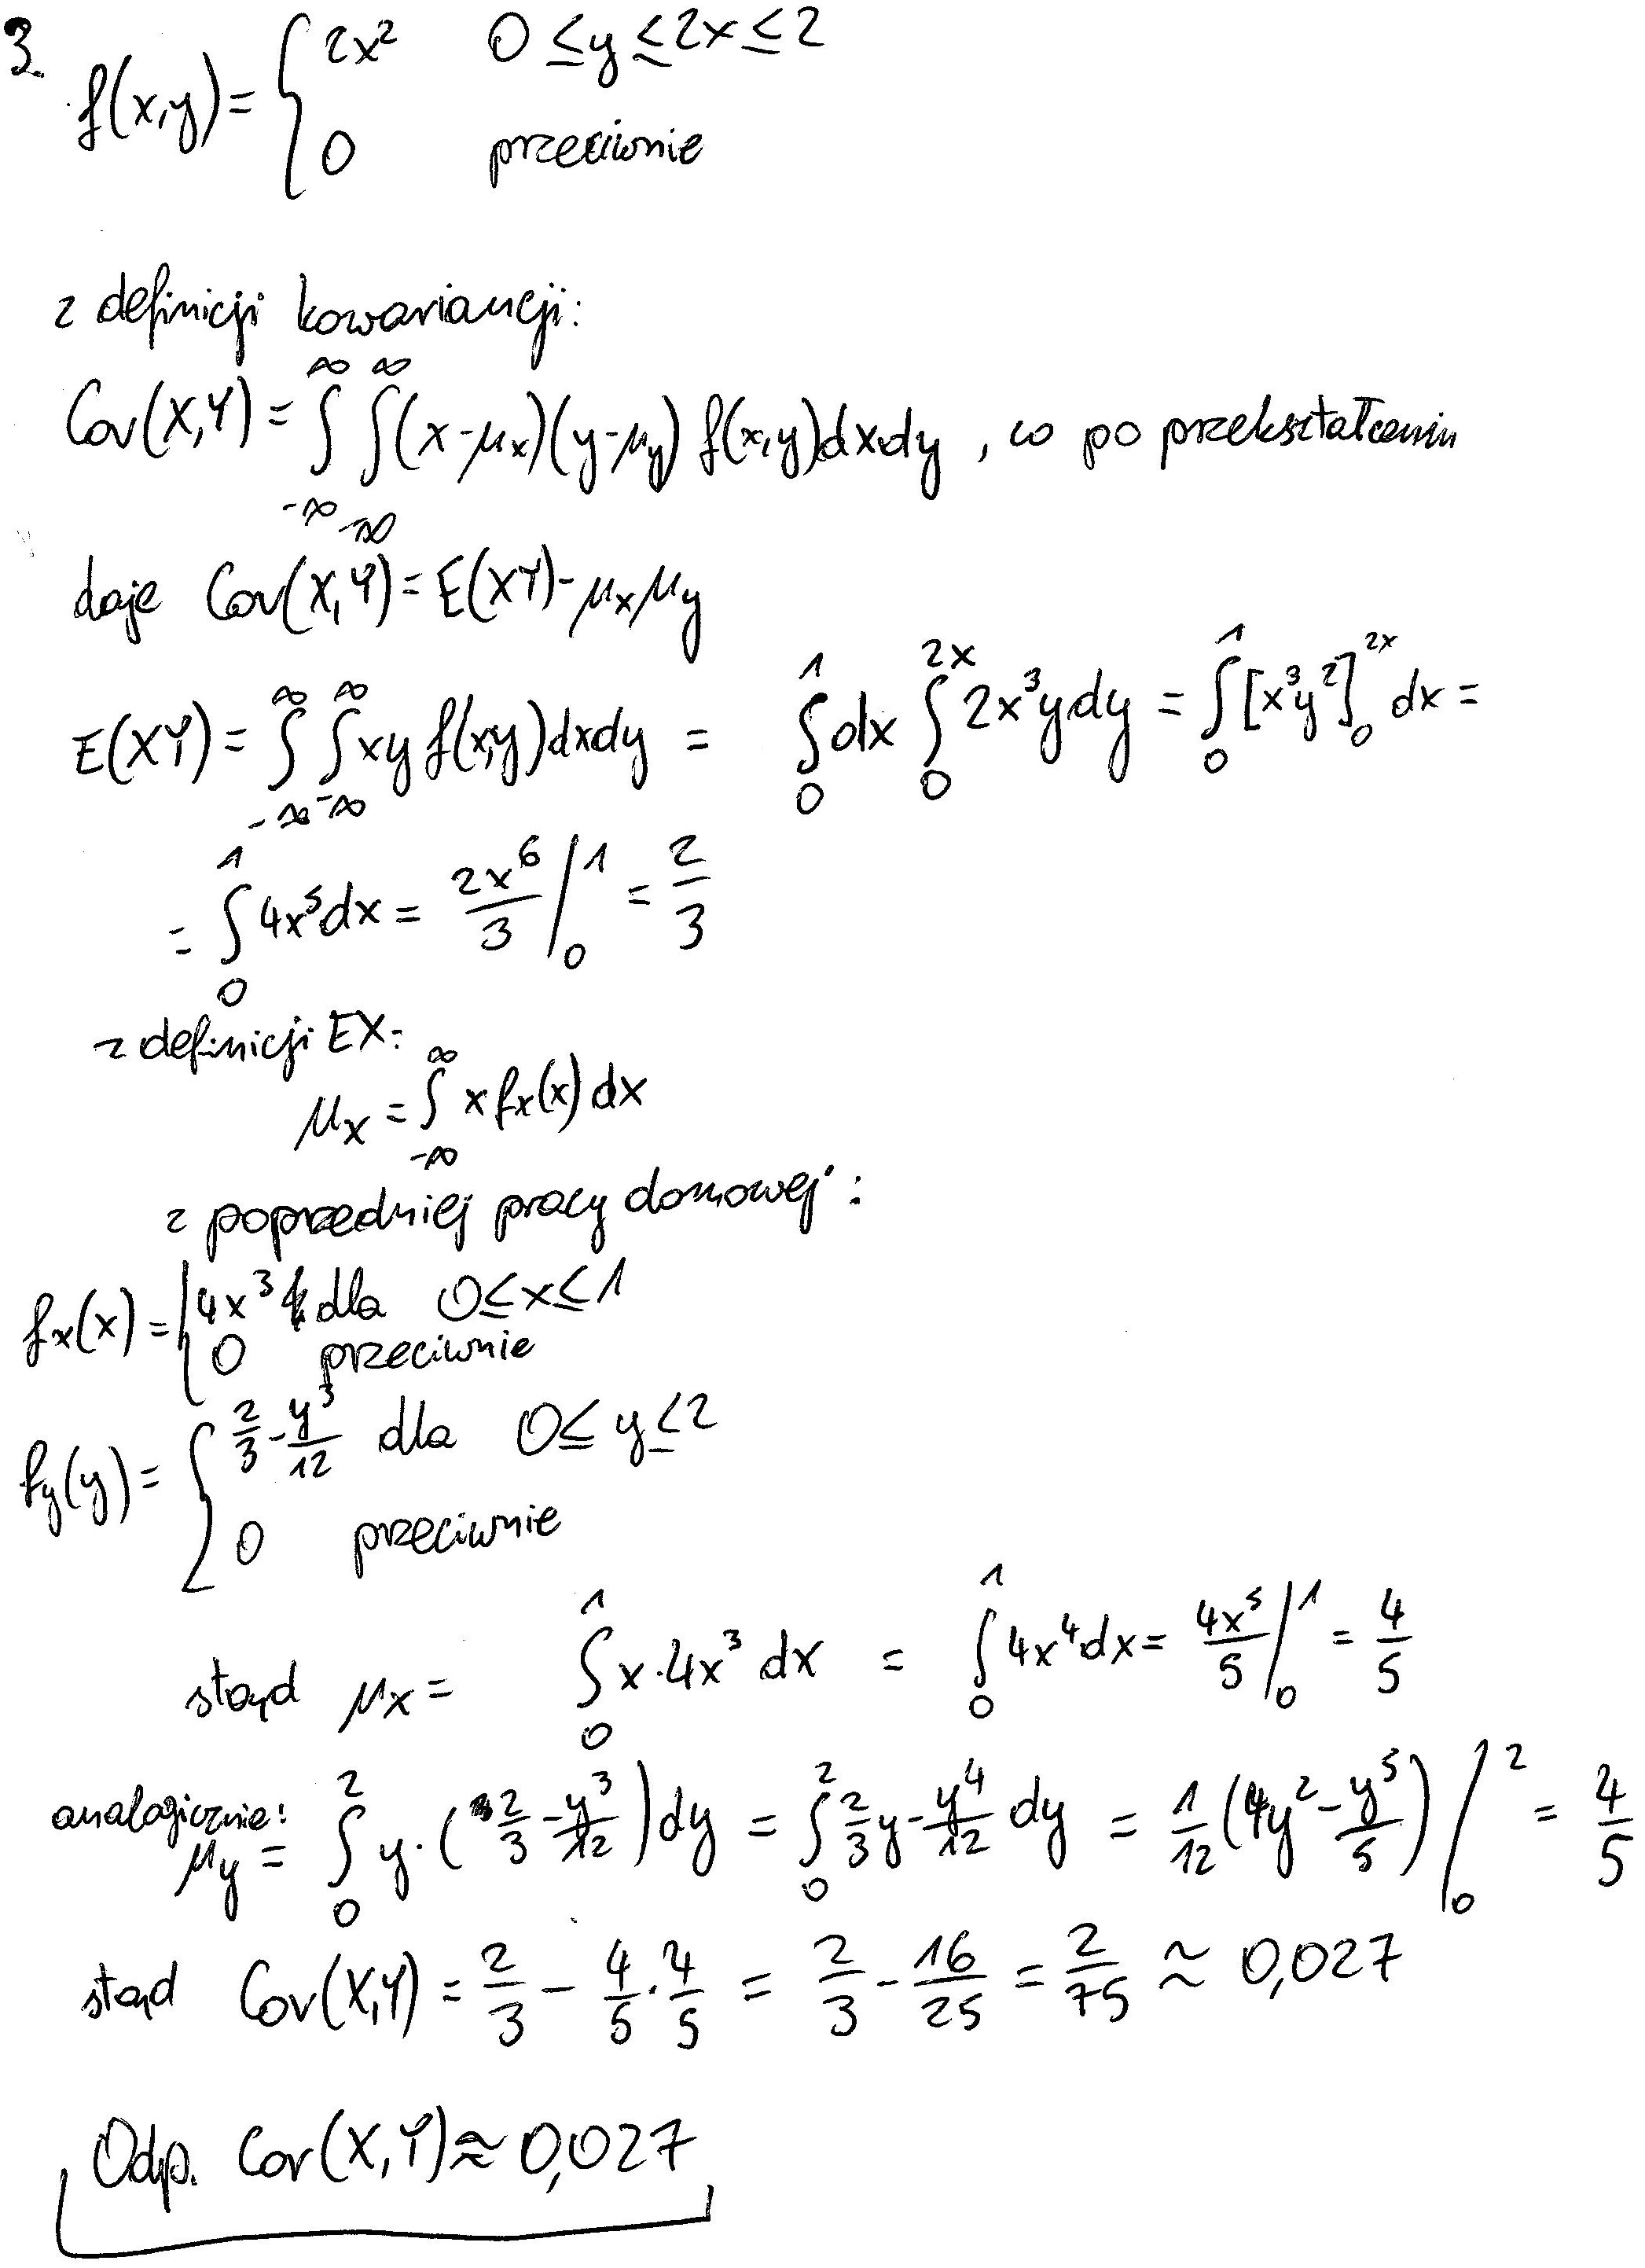 3. f(x,y) = { 2x² 0 ≤ y ≤ 2x ≤ 2
0 przeciwnie
z definicji kowariancji:
Cov(X,Y) = ∫_{-∞}^{∞} ∫_{-∞}^{∞} (x-μx)(y-μy) f(x,y)dxdy , co po przekształceniu
daje Cov(X,Y) = E(XY) - μxμy
E(XY) = ∫_{-∞}^{∞} ∫_{-∞}^{∞} xy f(x,y)dxdy = ∫_0^1 dx ∫_0^{2x} 2x³y dy = ∫_0^1 [x³y²]_0^{2x} dx =
= ∫_0^1 4x⁵dx = 2x⁶/3 |_0^1 = 2/3
z definicji EX:
μx = ∫_{-∞}^{∞} x fx(x) dx
z poprzedniej pracy domowej:
fx(x) = { 4x³ dla 0 ≤ x ≤ 1
0 przeciwnie
fy(y) = { 2/3 - y³/12 dla 0 ≤ y ≤ 2
0 przeciwnie
stąd μx = ∫_0^1 x·4x³ dx = ∫_0^1 4x⁴dx = 4x⁵/5 |_0^1 = 4/5
analogicznie:
μy = ∫_0^2 y·(2/3 - y³/12) dy = ∫_0^2 2/3 y - y⁴/12 dy = 1/12 (4y² - y⁵/5) |_0^2 = 4/5
stąd Cov(X,Y) = 2/3 - 4/5 · 4/5 = 2/3 - 16/25 = 2/75 ≈ 0,027
Odp. Cov(X,Y) ≈ 0,027